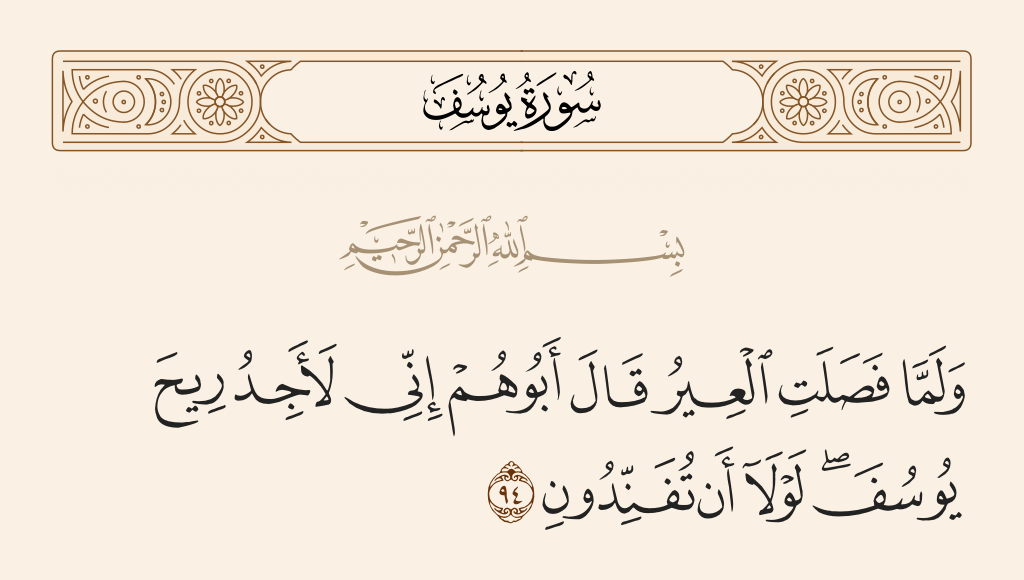 سُورَةُ يُوسُفَ
بِسْمِ ٱللَّهِ ٱلرَّحْمَٰنِ ٱلرَّحِيمِ
وَلَمَّا فَصَلَتِ ٱلْعِيرُ قَالَ أَبُوهُمْ إِنِّى لَأَجِدُ رِيحَ
يُوسُفَ ۖ لَوْلَآ أَن تُفَنِّدُونِ ٩٤